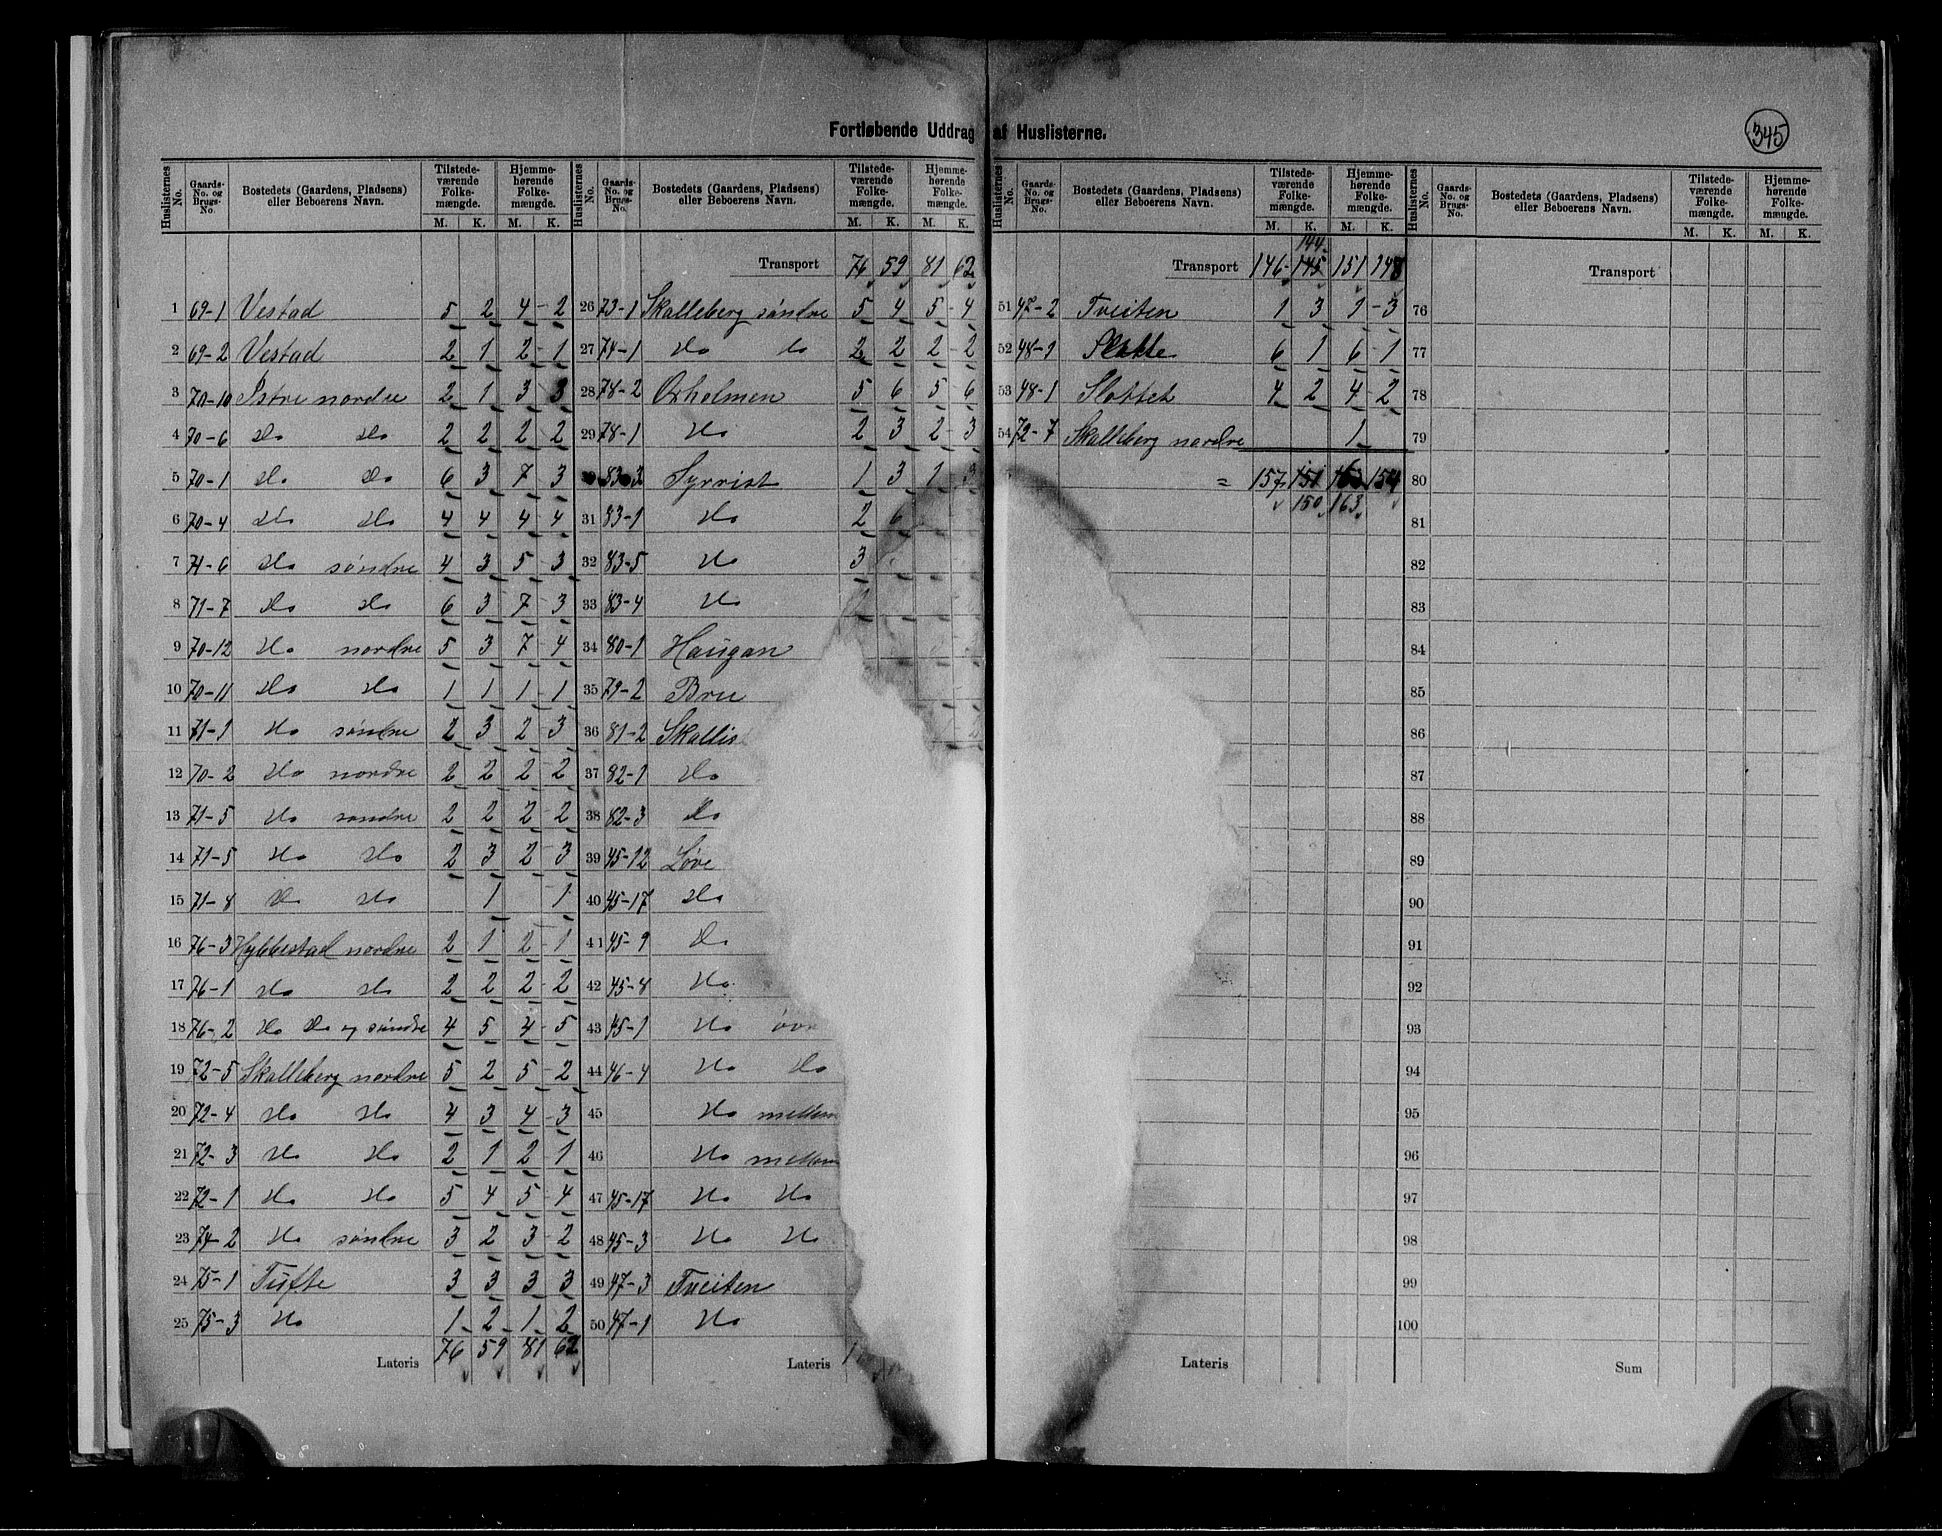 345
Fortløbende Uddrag af Huslisterne.
Huslisternes No. Gaards-No. og Brugs-No. Bostedets (Gaardens, Pladsens) eller Beboerens Navn. Tilstedeværende Folkemængde. M. K. Hjemmehørende Folkemængde. M. K.
1 69-1 Vestad 5 2 4-2
2 69-2 Vestad 2 1 2-1
3 70-10 Istre nordre 2 1 3 3
4 70-6 Do Do 2 2 2 2
5 70-1 Do Do 6 3 7 3
6 70-4 Do Do 4 4 4 4
7 71-6 Do søndre 4 3 5 3
8 71-7 Do Do 6 3 7 3
9 70-12 Do nordre 5 3 7 4
10 70-11 Do Do 1 1 1-1
11 71-1 Do søndre 2 3 2 3
12 70-2 Do nordre 2 2 2 2
13 71-5 Do søndre 2 2 2 2
14 71-5 Do Do 2 3 2 3
15 71-8 Do Do 1 1
16 76-3 Hybbestad nordre 2 1 2-1
17 76-1 Do Do 2 2 2-2
18 76-2 Do Do og søndre 4 5 4-5
19 72-5 Skalleberg nordre 5 2 5-2
20 72-4 Do Do 4 3 4-3
21 72-3 Do Do 2 1 2 1
22 72-1 Do Do 5 4 5-4
23 74-2 Do søndre 3 2 3-2
24 75-1 Tufte 3 3 3 3
25 75-3 Do 1 2 1 2
Lateris 76 59 81 62
Huslisternes No. Gaards-No. og Brugs-No. Bostedets (Gaardens, Pladsens) eller Beboerens Navn. Tilstedeværende Folkemængde. M. K. Hjemmehørende Folkemængde. M. K.
Transport 76 59 81 62
26 73-1 Skalleberg søndre 5 4 5-4
27 74-1 Do do 2 2 2-2
28 78-2 Oxholmen 5 6 5 6
29 78-1 Do 2 3 2-3
83-3 Syrrist 1 3 1 3
31 83-1 Do 2
32 83-5 Do 3
33 83-4 Do
34 80-1 Haugan
35 79-2 Bru
36 81-2 Skallis
37 82-1 Do
38 82-3 Do
39 45-12 Løve
40 45-17 Do
41 45-9 Do
42 45-8 Do
43 45-1 Do
44 46-4 Do Do
45 Do mellem
46 Do mellem
47 45-17 Do Do
48 45-3 Do Do
49 47-3 Tveiten
50 47-1 Do
Lateris 1
Huslisternes No. Gaards-No. og Brugs-No. Bostedets (Gaardens, Pladsens) eller Beboerens Navn. Tilstedeværende Folkemængde. M. K. Hjemmehørende Folkemængde. M. K.
144
Transport 146 145 151 148
51 47-2 Tveiten 1 3 1-3
52 48-1 Slotte 6 1 6-1
53 48-1 Slottet 4 2 4 2
54 72-7 Skalleberg nordre 1
= 157 151 154
150 163
Lateris
Huslisternes No. Gaards-No. og Brugs-No. Bostedets (Gaardens, Pladsens) eller Beboerens Navn. Tilstedeværende Folkemængde. M. K. Hjemmehørende Folkemængde. M. K.
Transport
76
77
78
79
80
81
82
83
84
85
86
87
88
89
90
91
92
93
94
95
96
97
98
99
100
Sum